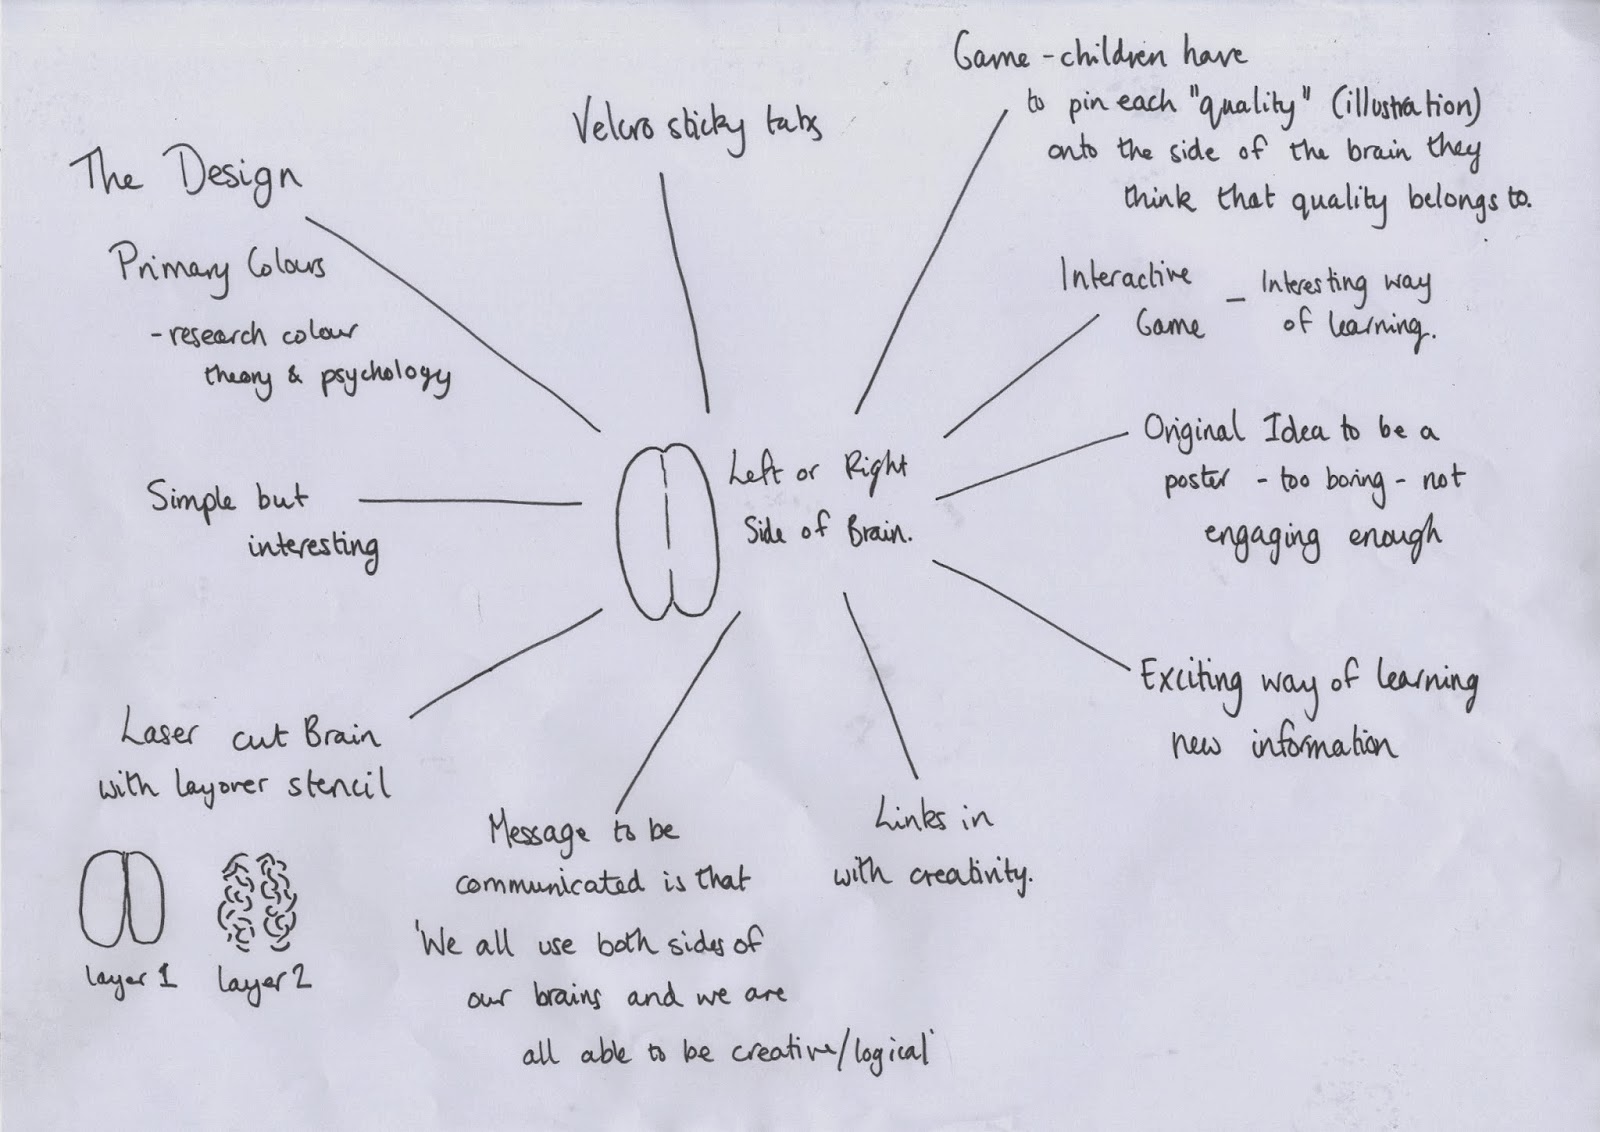 The Design
Primary Colours
- research colour
theory & psychology
Velcro sticky tabs
Game - children have
to pin each "quality" (illustration)
onto the side of the brain they
think that quality belongs to.
Interactive
Game
- Interesting way
of learning.
Original Idea to be a
poster - too boring - not
engaging enough
Exciting way of learning
new information
Left or Right
Side of Brain.
Simple but
interesting
Laser cut Brain
with layover stencil
layer 1
layer 2
Message to be
communicated is that
'We all use both sides of
our brains and we are
all able to be creative/logical'
Links in
with creativity.